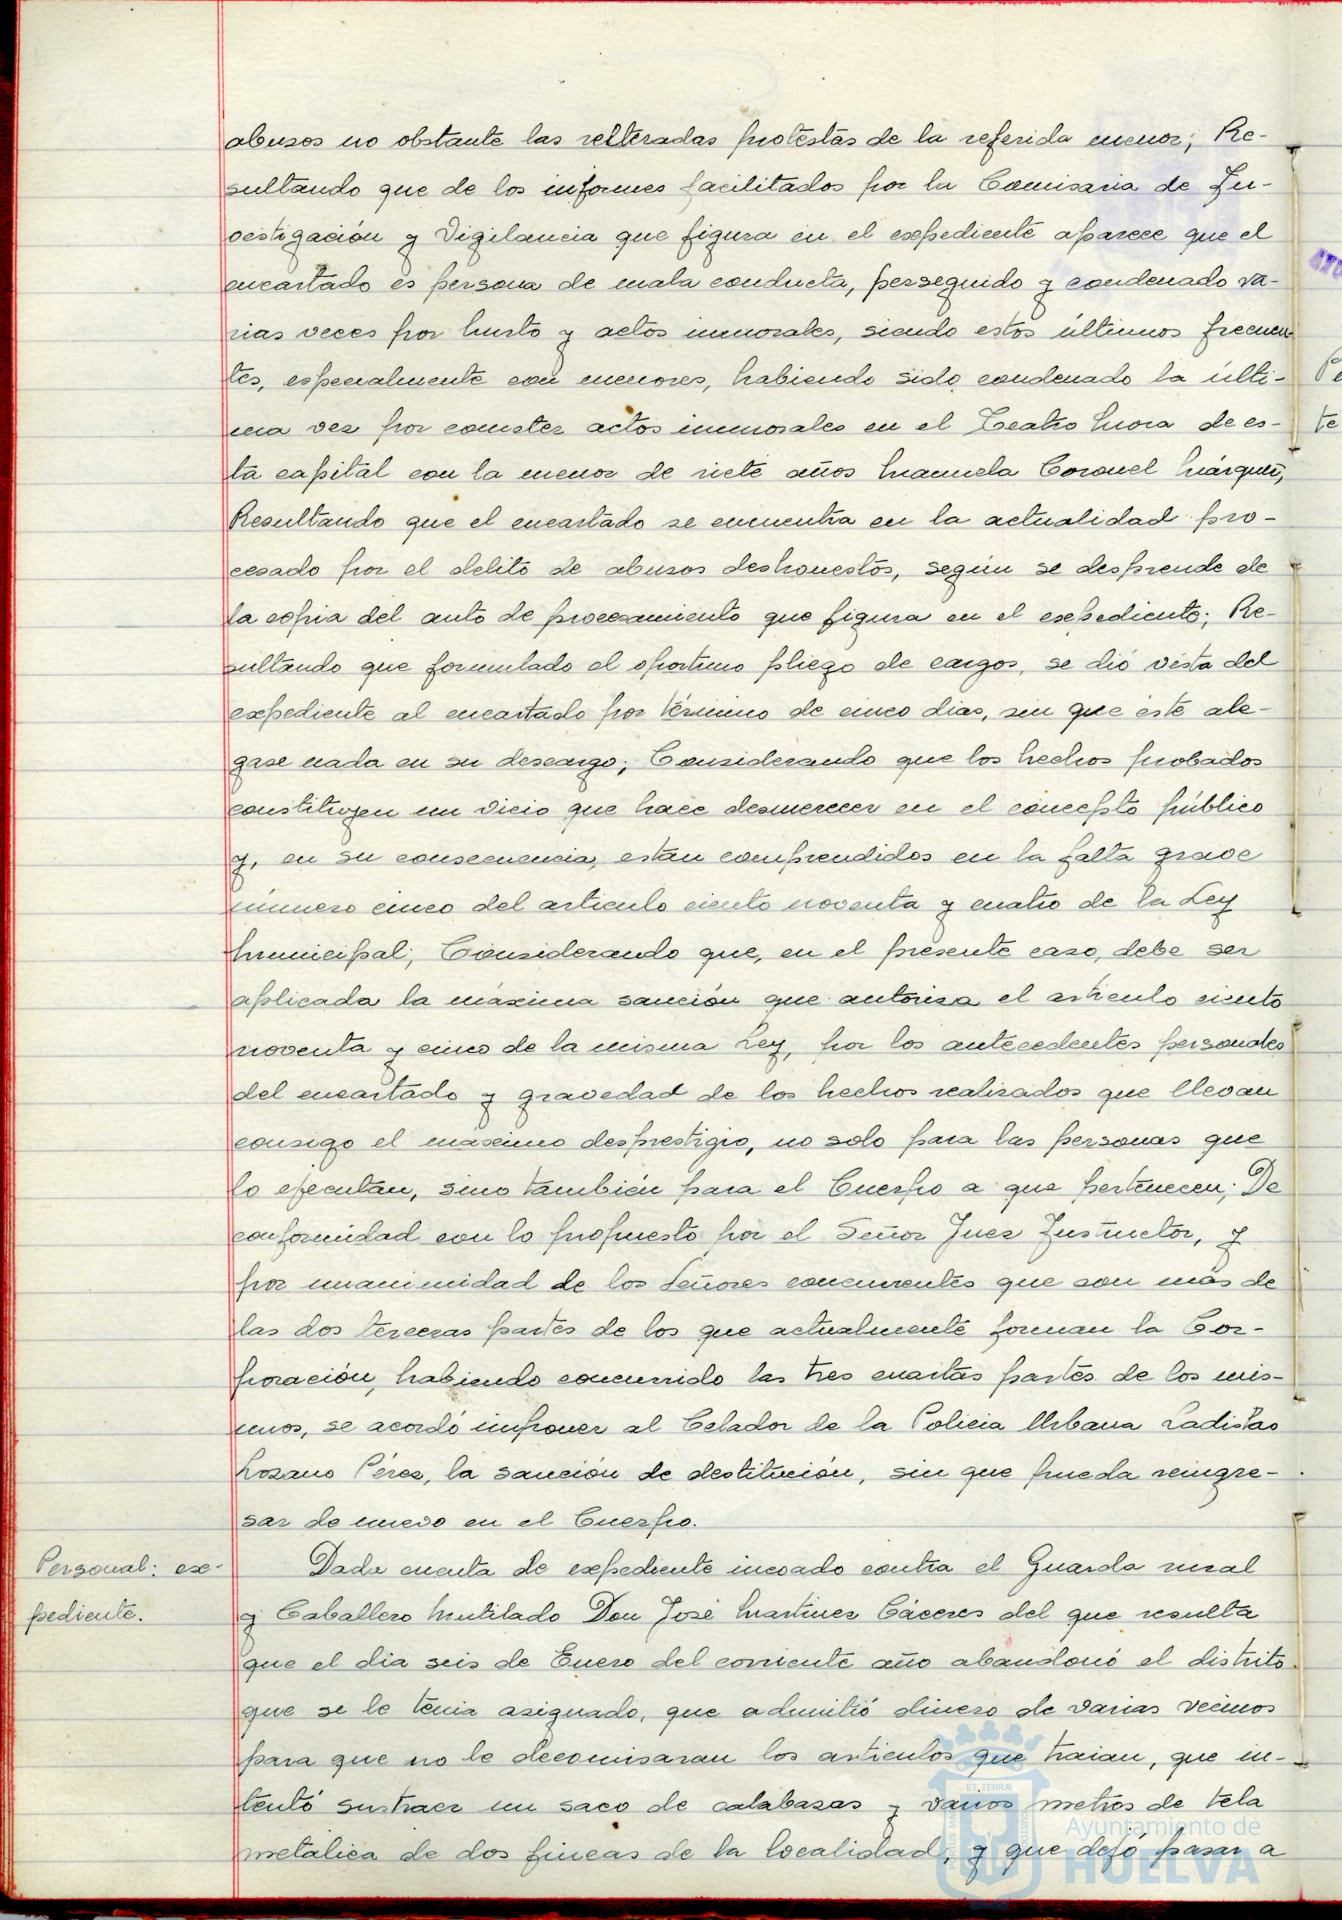 abusos no obstante las reiteradas protestas de la referida menor; Re-
sultando que de los informes facilitados por la Comisaria de In-
vestigación y Vigilancia que figura en el expediente aparece que el
encartado es persona de mala conducta, perseguido y condenado va-
rias veces por hurto y actos inmorales, siendo estos últimos frecuen
tes, especialmente con menores, habiendo sido condenado la últi-
ma vez por cometer actos inmorales en el Teatro Mora de es-
ta capital con la menor de siete años Manuela Coronel Márquez;
Resultando que el encartado se encuentra en la actualidad pro-
cesado por el delito de abusos deshonestos, según se desprende de
la copia del auto de procesamiento que figura en el expediente; Re-
sultando que formulado el oportuno pliego de cargos, se dió vista del
expediente al encartado por término de cinco dias, sin que éste ale-
gase nada en su descargo; Considerando que los hechos probados
constituyen un vicio que hace desmerecer en el concepto público
y, en su consecuencia, están comprendidos en la falta grave
número cinco del articulo ciento noventa y cuatro de la Ley
Municipal; Considerando que, en el presente caso, debe ser
aplicada la máxima sanción que autoriza el articulo ciento
noventa y cinco de la misma Ley, por los antecedentes personales
del encartado y gravedad de los hechos realizados que llevan
consigo el máximo desprestigio, no solo para las personas que
lo ejecutan, sino también para el Cuerpo a que pertenecen; De
conformidad con lo propuesto por el Señor Juez Instructor, y
por unanimidad de los Señores concurrentes que son más de
las dos terceras partes de los que actualmente forman la Cor-
poración, habiendo concurrido las tres cuartas partes de los mis-
mos, se acordó imponer al Celador de la Policia Urbana Ladislao
Lozano Pérez, la sanción de destitución, sin que pueda reingre-
sar de nuevo en el Cuerpo.
Personal: ex-
pediente.
Dada cuenta de expediente incoado contra el Guarda rural
y Caballero Mutilado Don José Martinez Cáceres del que resulta
que el dia seis de Enero del corriente año abandonó el distrito
que se le tenia asignado, que admitió dinero de varias vecinos
para que no le decomisaran los articulos que traian, que in-
tentó sustraer un saco de calabazas y varios metros de tela
metálica de dos fincas de la localidad, y que dejó pasar a
Ayuntamiento de
HUELVA